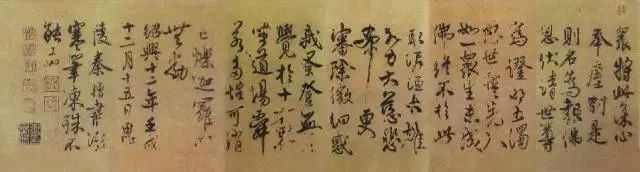 眾將此深心
奉塵剎是
則名為報佛
恩伏請世尊
為證明五濁
惡世誓先入
如一眾生未成
佛終不於此
取泥洹大雄
大力大慈悲
希更
審除微細惑
我早登無上
覺於十方界
坐道場舜
若多性可消
亡爍迦羅心
無動
紹興十二年壬戌
十二月十五日思
陵秦檜書凝
寒筆凍殊不
能工